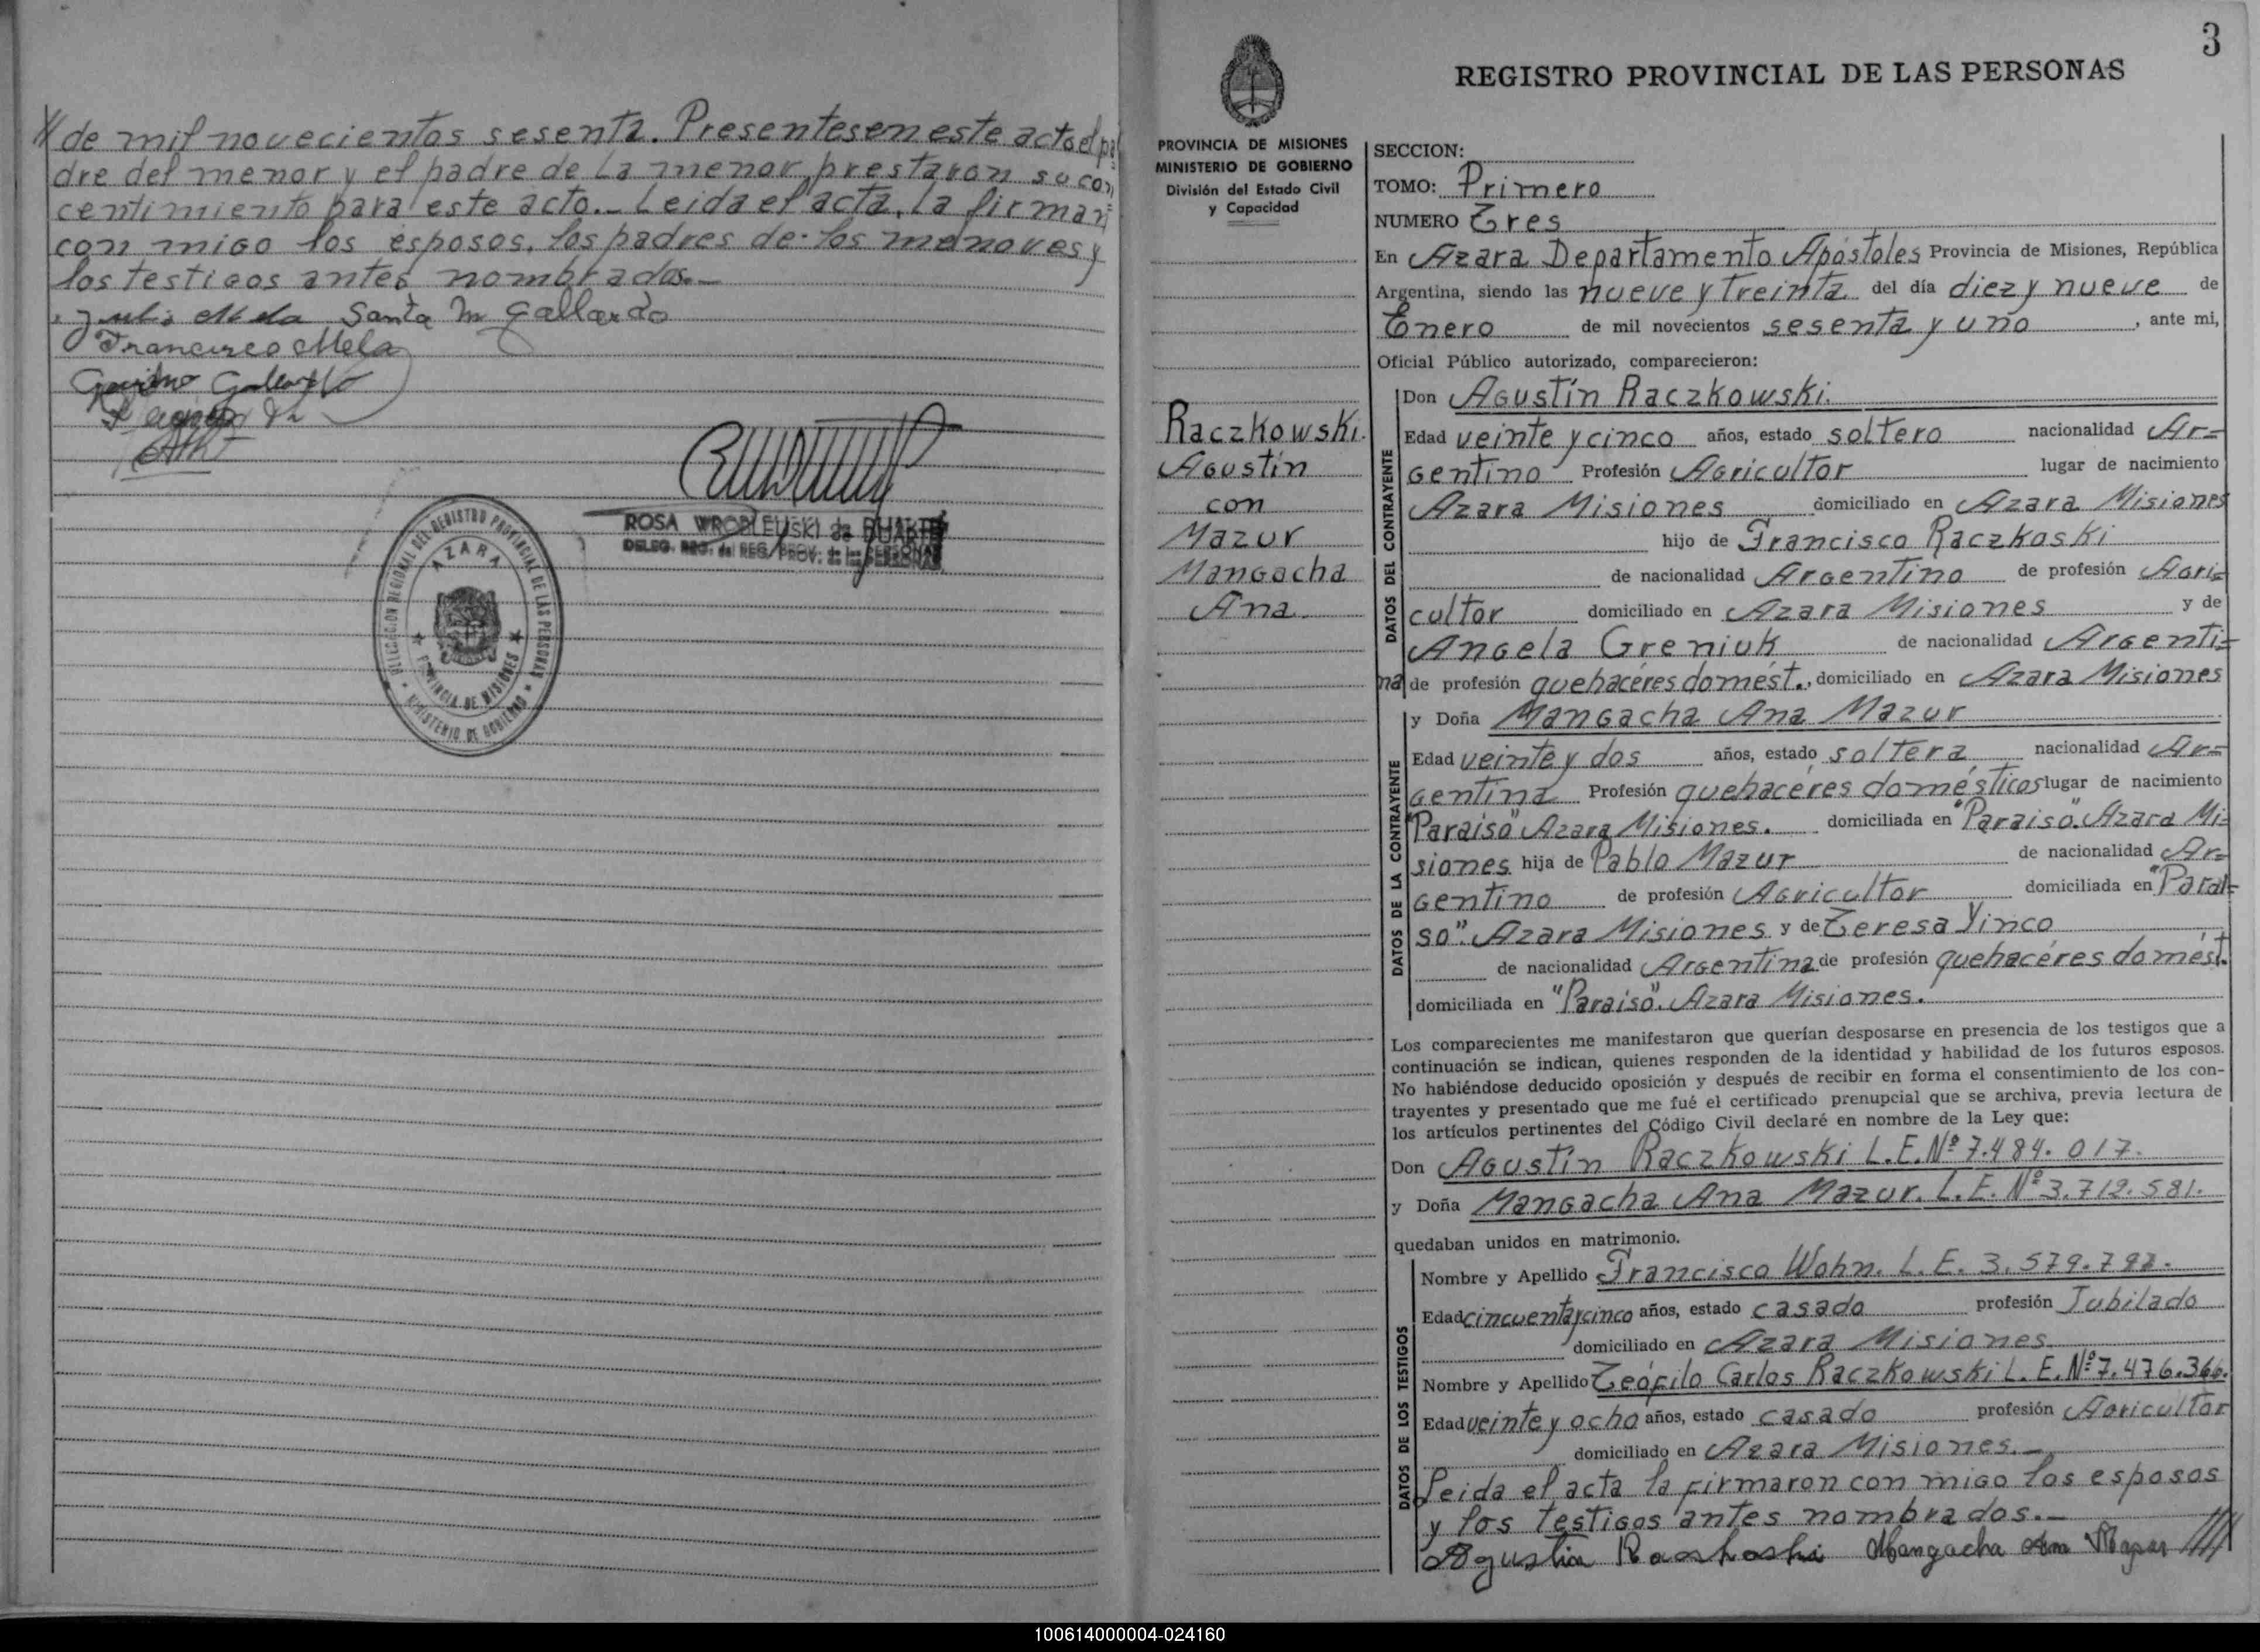 // de mil novecientos sesenta. Presentesen este acto el pa
dre del menor y el padre de la menor, prestaron su con
centimiento para este acto.- Leida el acta, la firman
con migo los esposos, los padres de los menores y
los testigos antes nombrados.-
Julio Mela Santa M Gallardo
Francisco Mela
ROSA WROBLEUSKI de DUARTE
DELEG. REG. del REG. PROV. de las PERSONAS
DELEGACION REGIONAL DEL REGISTRO PROVINCIAL DE LAS PERSONAS
AZARA
PROVINCIA DE MISIONES
MINISTERIO DE GOBIERNO
3
REGISTRO PROVINCIAL DE LAS PERSONAS
PROVINCIA DE MISIONES
MINISTERIO DE GOBIERNO
División del Estado Civil
y Capacidad
Raczkowski
Agustín
con
Mazur
Mangacha
Ana
SECCION:
TOMO: Primero
NUMERO Tres
En Azara Departamento Apóstoles Provincia de Misiones, República
Argentina, siendo las nueve y treinta del día diez y nueve de
Enero de mil novecientos sesenta y uno, ante mi,
Oficial Público autorizado, comparecieron:
DATOS DEL CONTRAYENTE
Don Agustín Raczkowski.
Edad veinte y cinco años, estado soltero nacionalidad Ar=
gentino Profesión Agricultor lugar de nacimiento
Azara Misiones domiciliado en Azara Misiones
hijo de Francisco Raczkoski
de nacionalidad Argentino de profesión Agri=
cultor domiciliado en Azara Misiones y de
Angela Greniuk de nacionalidad Argenti=
na de profesión quehacéres domést., domiciliado en Azara Misiones
DATOS DE LA CONTRAYENTE
y Doña Mangacha Ana Mazur
Edad veinte y dos años, estado soltera nacionalidad Ar=
gentina Profesión quehacéres domésticos lugar de nacimiento
"Paraiso" Azara Misiones. domiciliada en "Paraiso". Azara Mi=
siones hija de Pablo Mazur de nacionalidad Ar=
gentino de profesión Agricultor domiciliada en "Parai=
so". Azara Misiones y de Teresa Yinco
de nacionalidad Argentina de profesión quehacéres domést.
domiciliada en "Paraiso". Azara Misiones.
Los comparecientes me manifestaron que querían desposarse en presencia de los testigos que a
continuación se indican, quienes responden de la identidad y habilidad de los futuros esposos.
No habiéndose deducido oposición y después de recibir en forma el consentimiento de los con-
trayentes y presentado que me fué el certificado prenupcial que se archiva, previa lectura de
los artículos pertinentes del Código Civil declaré en nombre de la Ley que:
Don Agustín Raczkowski L.E.Nº 7.484.017.
y Doña Mangacha Ana Mazur. L.E.Nº 3.712.581.
quedaban unidos en matrimonio.
DATOS DE LOS TESTIGOS
Nombre y Apellido Francisco Wohn. L.E. 3.579.792.
Edad cincuenta y cinco años, estado casado profesión Jubilado
domiciliado en Azara Misiones
Nombre y Apellido Teófilo Carlos Raczkowski L.E.Nº 7.476.366.
Edad veinte y ocho años, estado casado profesión Agricultor
domiciliado en Azara Misiones.-
Leida el acta la firmaron con migo los esposos
y los testigos antes nombrados.-
Agustin Raskoski Mangacha Ana Mazur ////
100614000004-024160